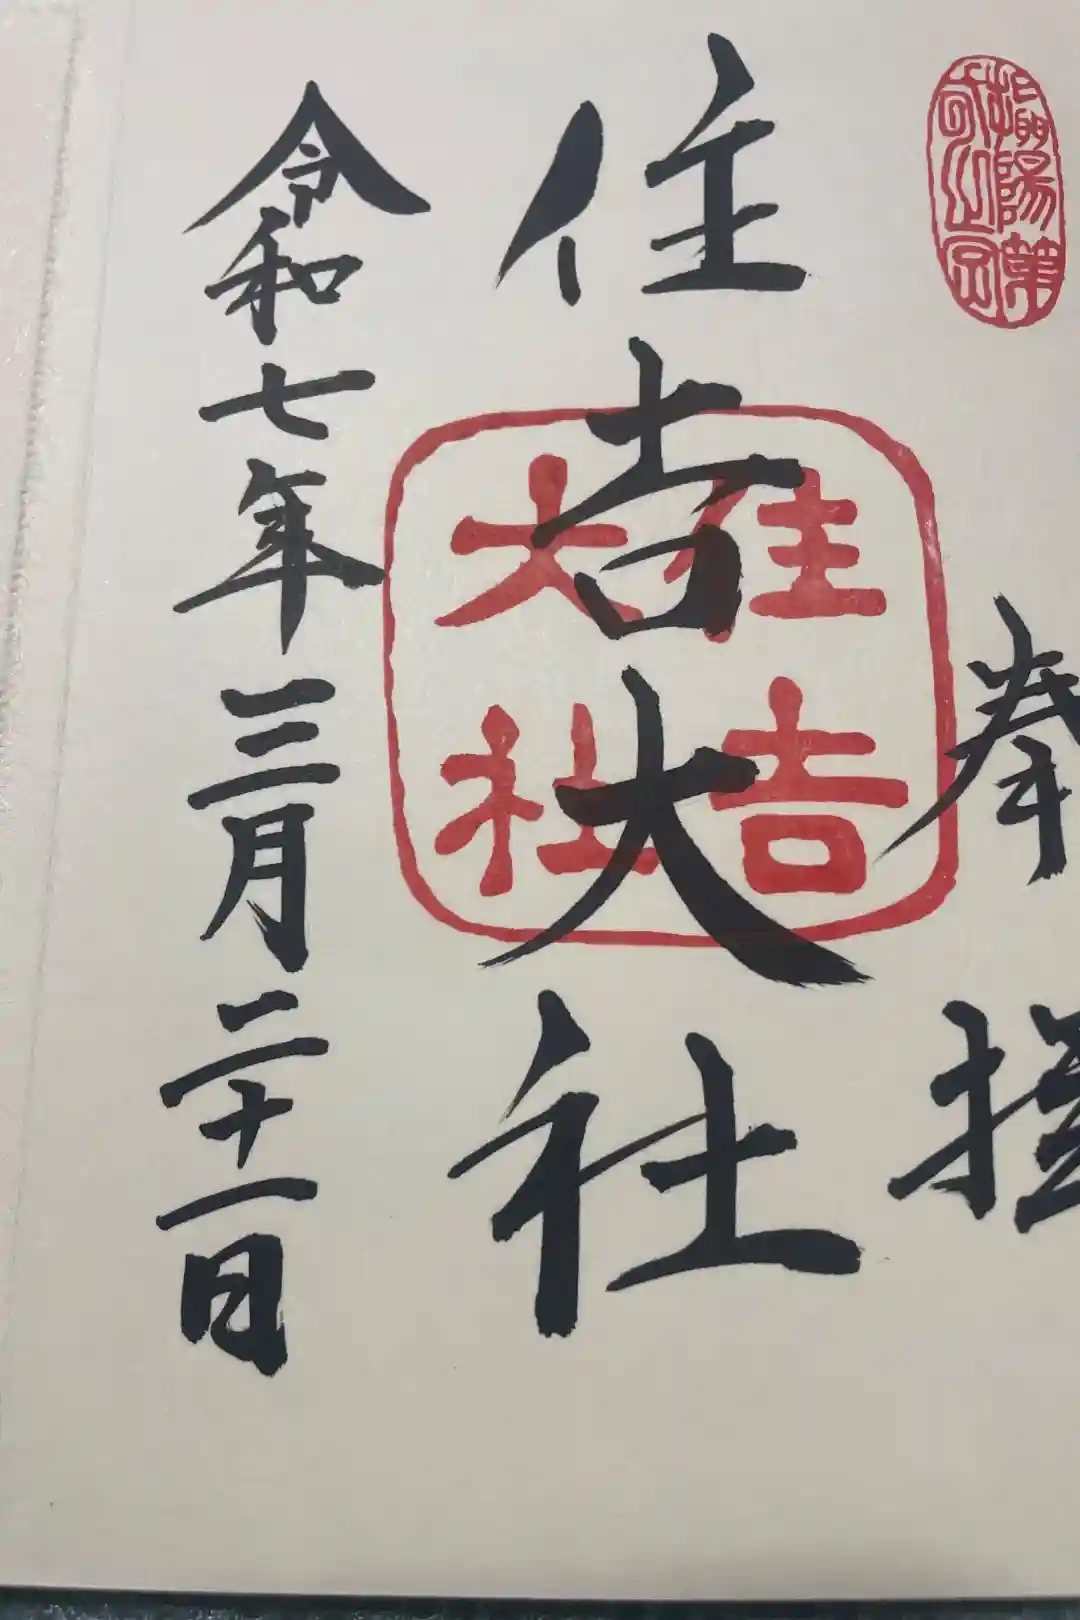 奉拝
住吉大社
令和七年三月二十一日
住吉
大社